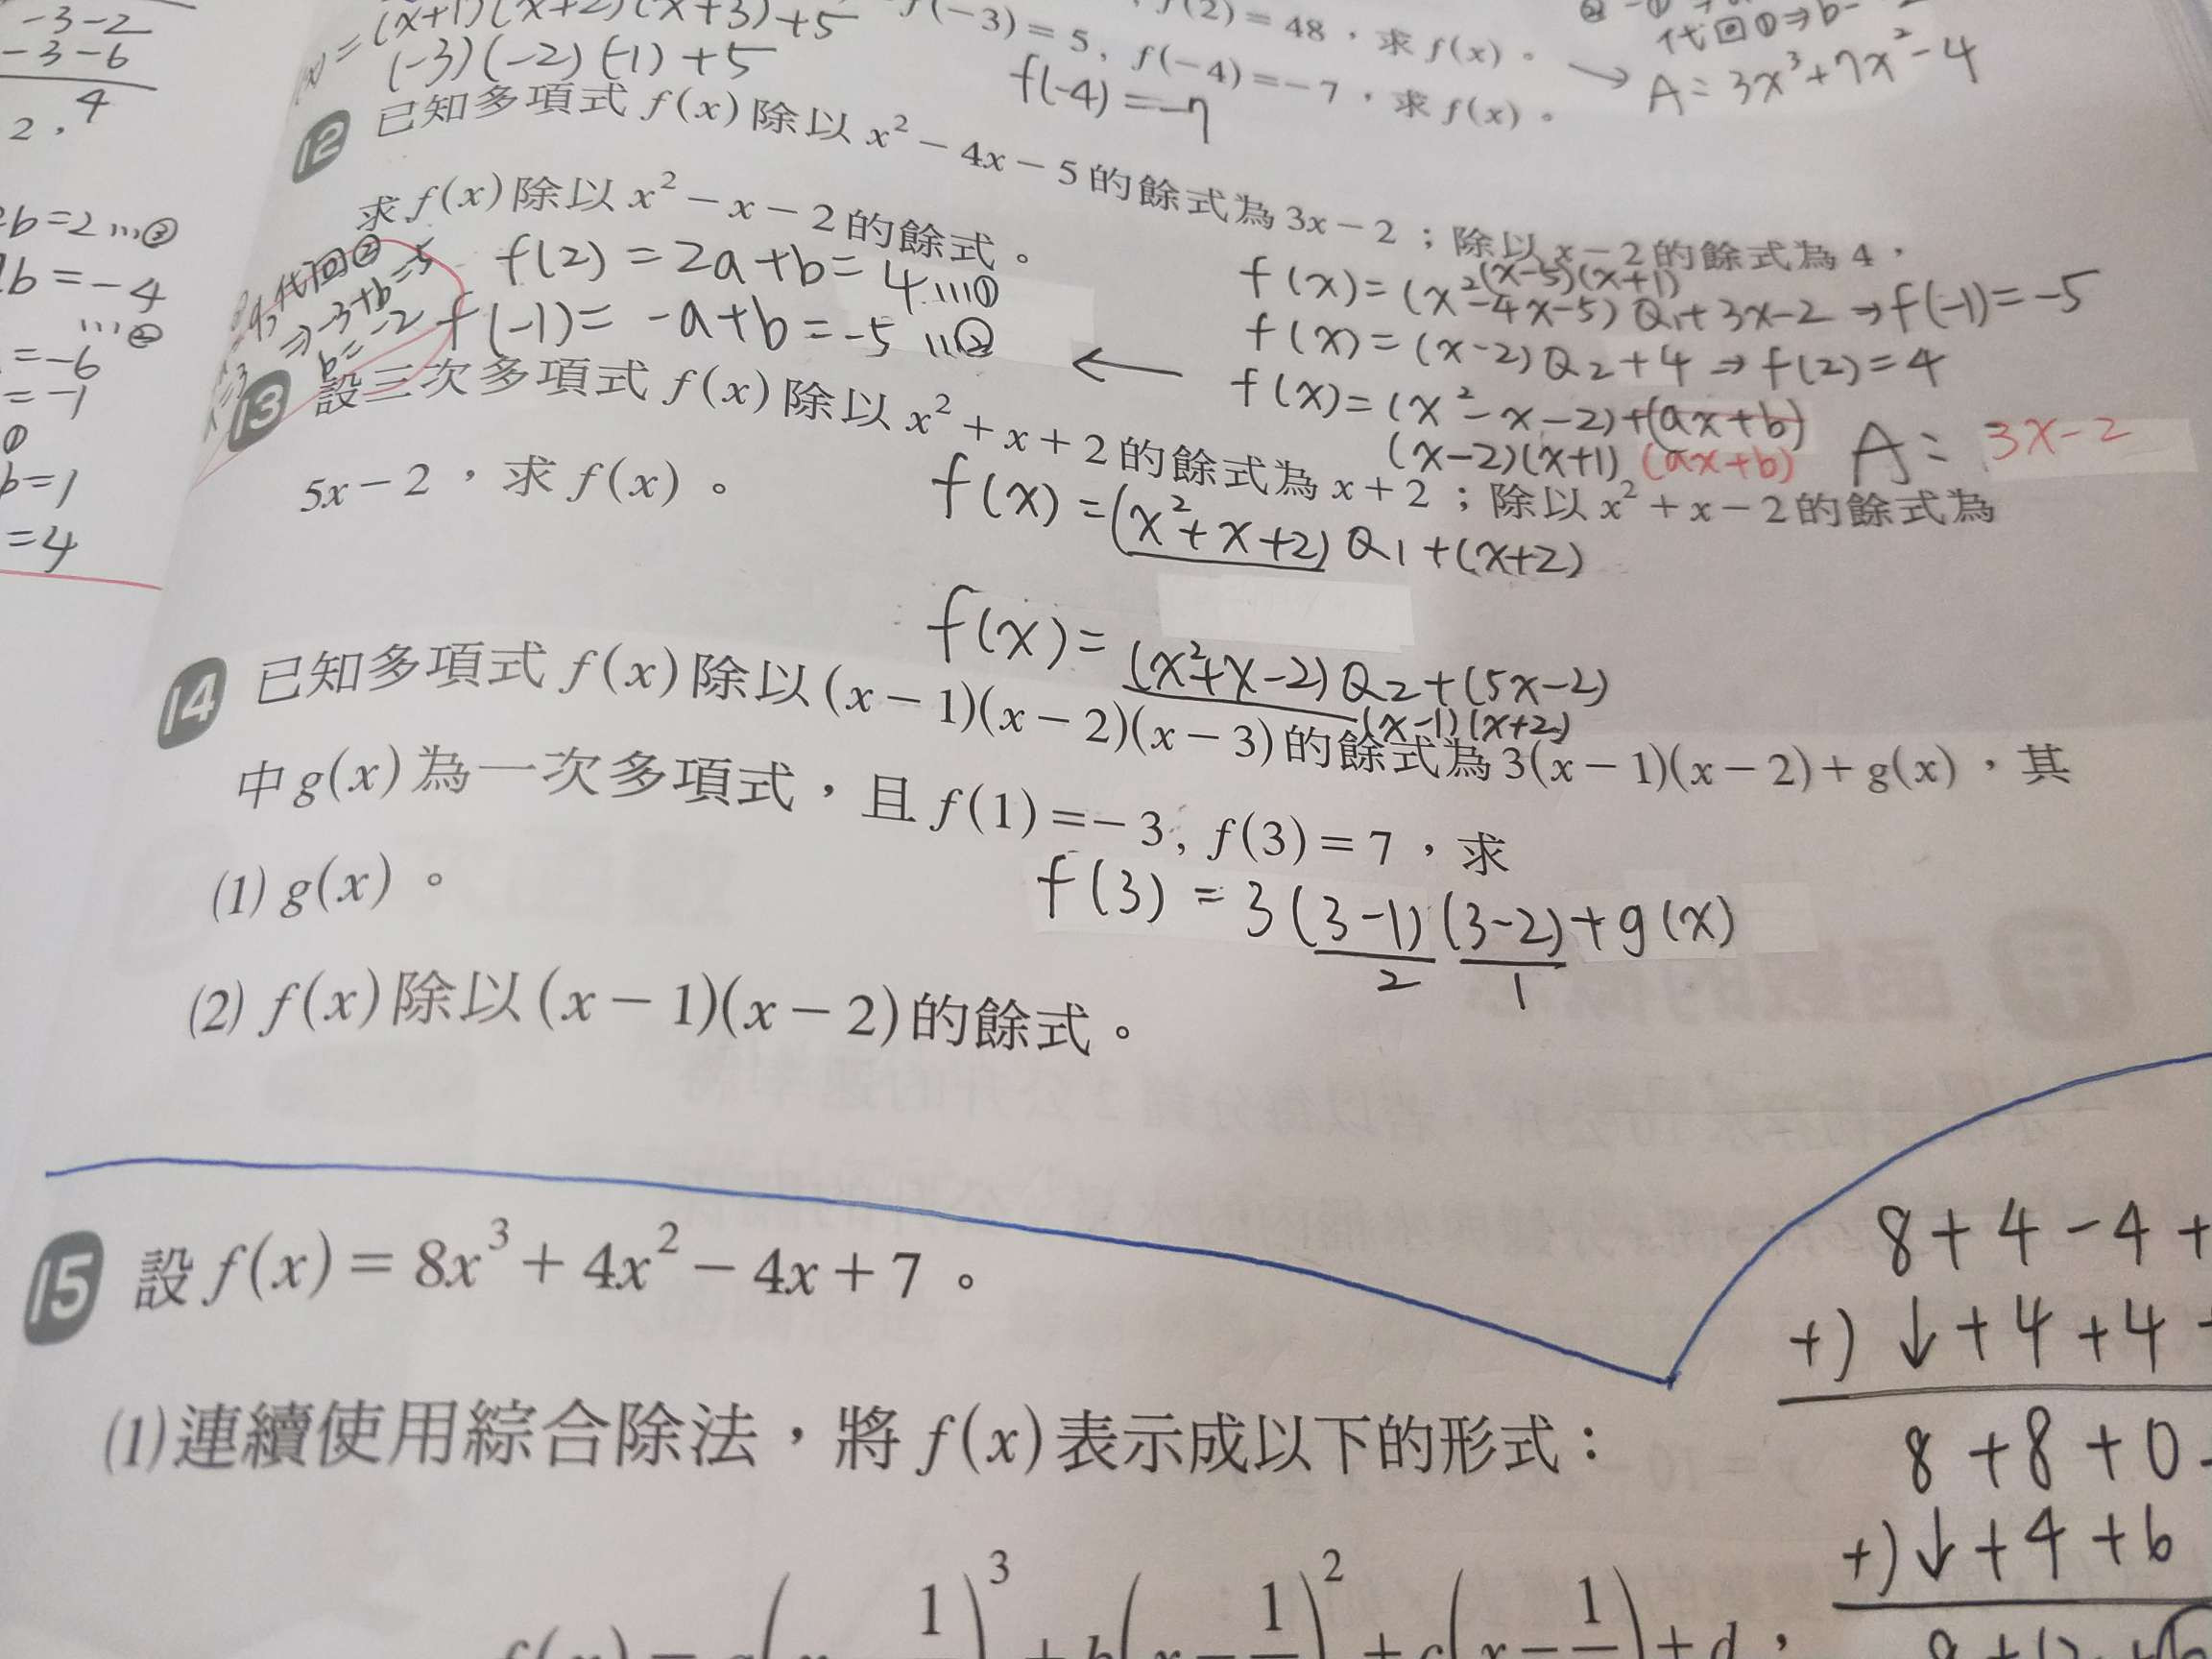 -3-2
-3-6
4
2,4
(x+1)(x+2)(x+3)+5
(-3)(-2)(-1)+5
f(2)=48,求f(x)。
f(-3)=5, f(-4)=-7,求f(x)。
f(-4)=-7
代回①⇒b-
→ A=3x³+7x²-4
12 已知多項式f(x)除以x²-4x-5的餘式為3x-2;除以x-2的餘式為4,
求f(x)除以x²-x-2的餘式。
f(2)=2a+b=4...①
f(-1)=-a+b=-5...②
代回②
⇒-3+b=-5
b=-2
(x-5)(x+1)
f(x)=(x²-4x-5)Q₁+3x-2→f(-1)=-5
f(x)=(x-2)Q₂+4→f(2)=4
f(x)=(x²-x-2)+(ax+b)
(x-2)(x+1)(ax+b)
A=3x-2
b=2...③
b=-4
...②
=-6
=-1
①
b=1
=4
13 設三次多項式f(x)除以x²+x+2的餘式為x+2;除以x²+x-2的餘式為
5x-2,求f(x)。
f(x)=(x²+x+2)Q₁+(x+2)
f(x)=(x²+x-2)Q₂+(5x-2)
(x-1)(x+2)
14 已知多項式f(x)除以(x-1)(x-2)(x-3)的餘式為3(x-1)(x-2)+g(x),其
中g(x)為一次多項式,且f(1)=-3, f(3)=7,求
(1) g(x)。
f(3)=3(3-1)(3-2)+g(x)
2 1
(2) f(x)除以(x-1)(x-2)的餘式。
15 設f(x)=8x³+4x²-4x+7。
(1)連續使用綜合除法,將f(x)表示成以下的形式:
8+4-4+
+)↓+4+4
8+8+0
+)↓+4+6